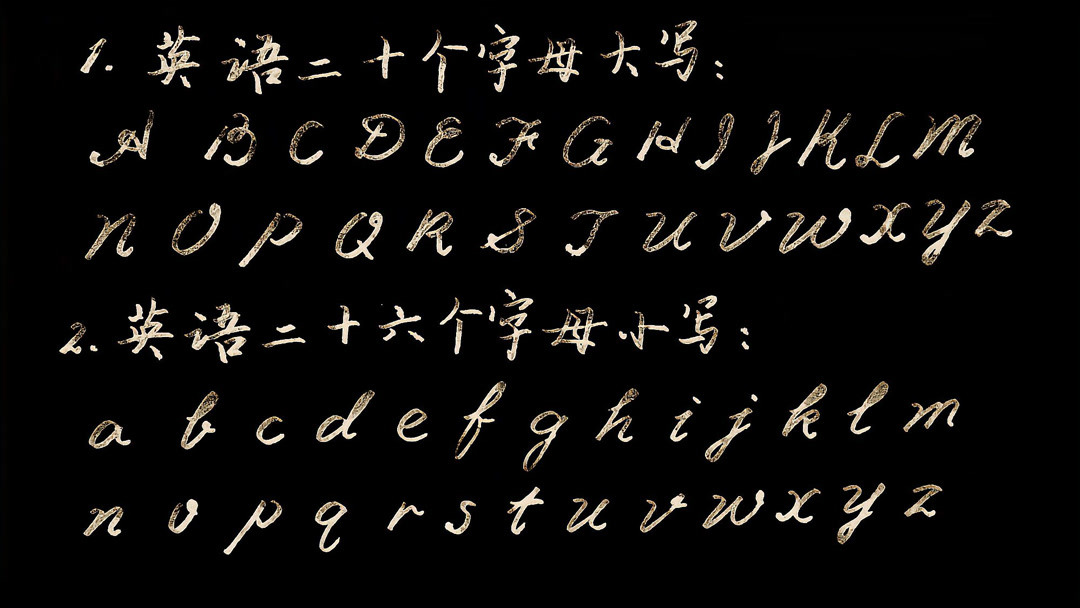 1. 英语二十个字母大写:
A B C D E F G H I J K L M
N O P Q R S T U V W X Y Z
2. 英语二十六个字母小写:
a b c d e f g h i j k l m
n o p q r s t u v w x y z